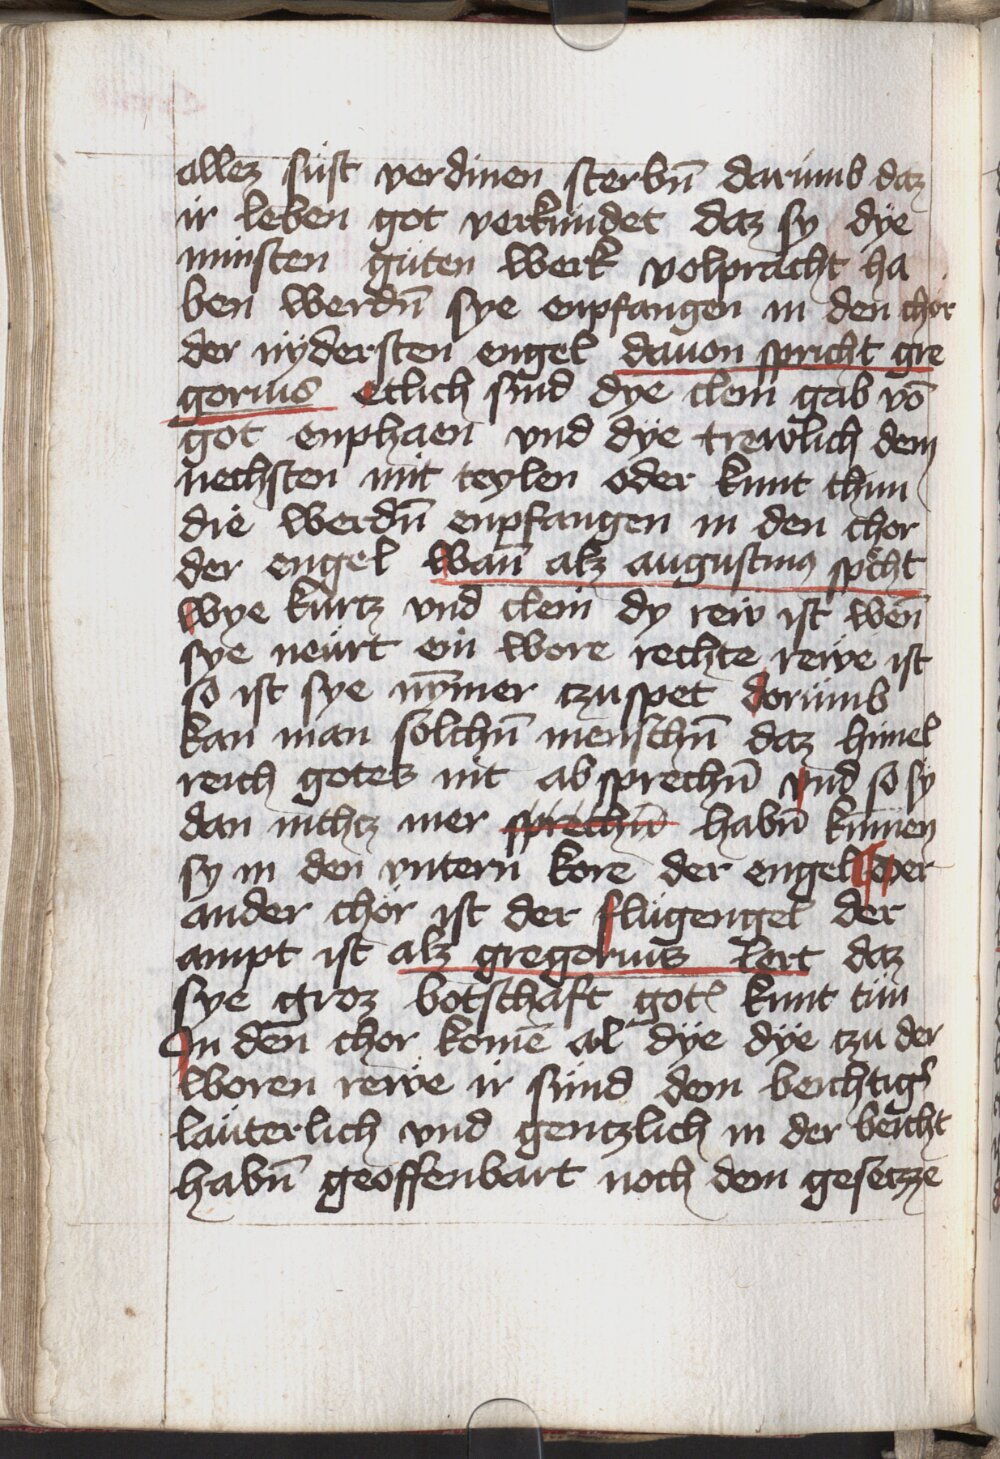 allez süst verdinen sterbn̄ darümb daz
ir leben got verkündet daz sy dÿe
minsten güten werk volpracht ha
ben werdn̄ sye enpfangen in den chör
der nÿdersten engel dauon spricht gre
gorius etlich sind dÿe clein gab vō
got enphaen vnd dÿe trewlich dem
nechsten mit teylen oder kunt thun
die werdn̄ enpfangen in den chor
der engel Wan̄ alz augustinus spͤcht
Wye kurtz vnd clein dy rew ist wen̄
sye neürt ein wore rechte rewe ist
so ist sye nȳmer tzu spet dorümb
kan man sölchn̄ menschn̄ daz himel
reich gotes nit ab sprechn̄ vnd so sÿ
dan nichtz mer sprechn̄ habn̄ kūmen
sy in den vntern kore der engel Der
ander chör ist der flügengel der
ampt ist alz gregorius lert daz
sye groz botschaft gotz kunt tün
In den chor komē al dÿe dÿe tzu der
woren rewe ir sünd dem beichtigͥ
läuterlich vnd gentzlich in der beicht
habn̄ geoffenbart noch dem gesetzze